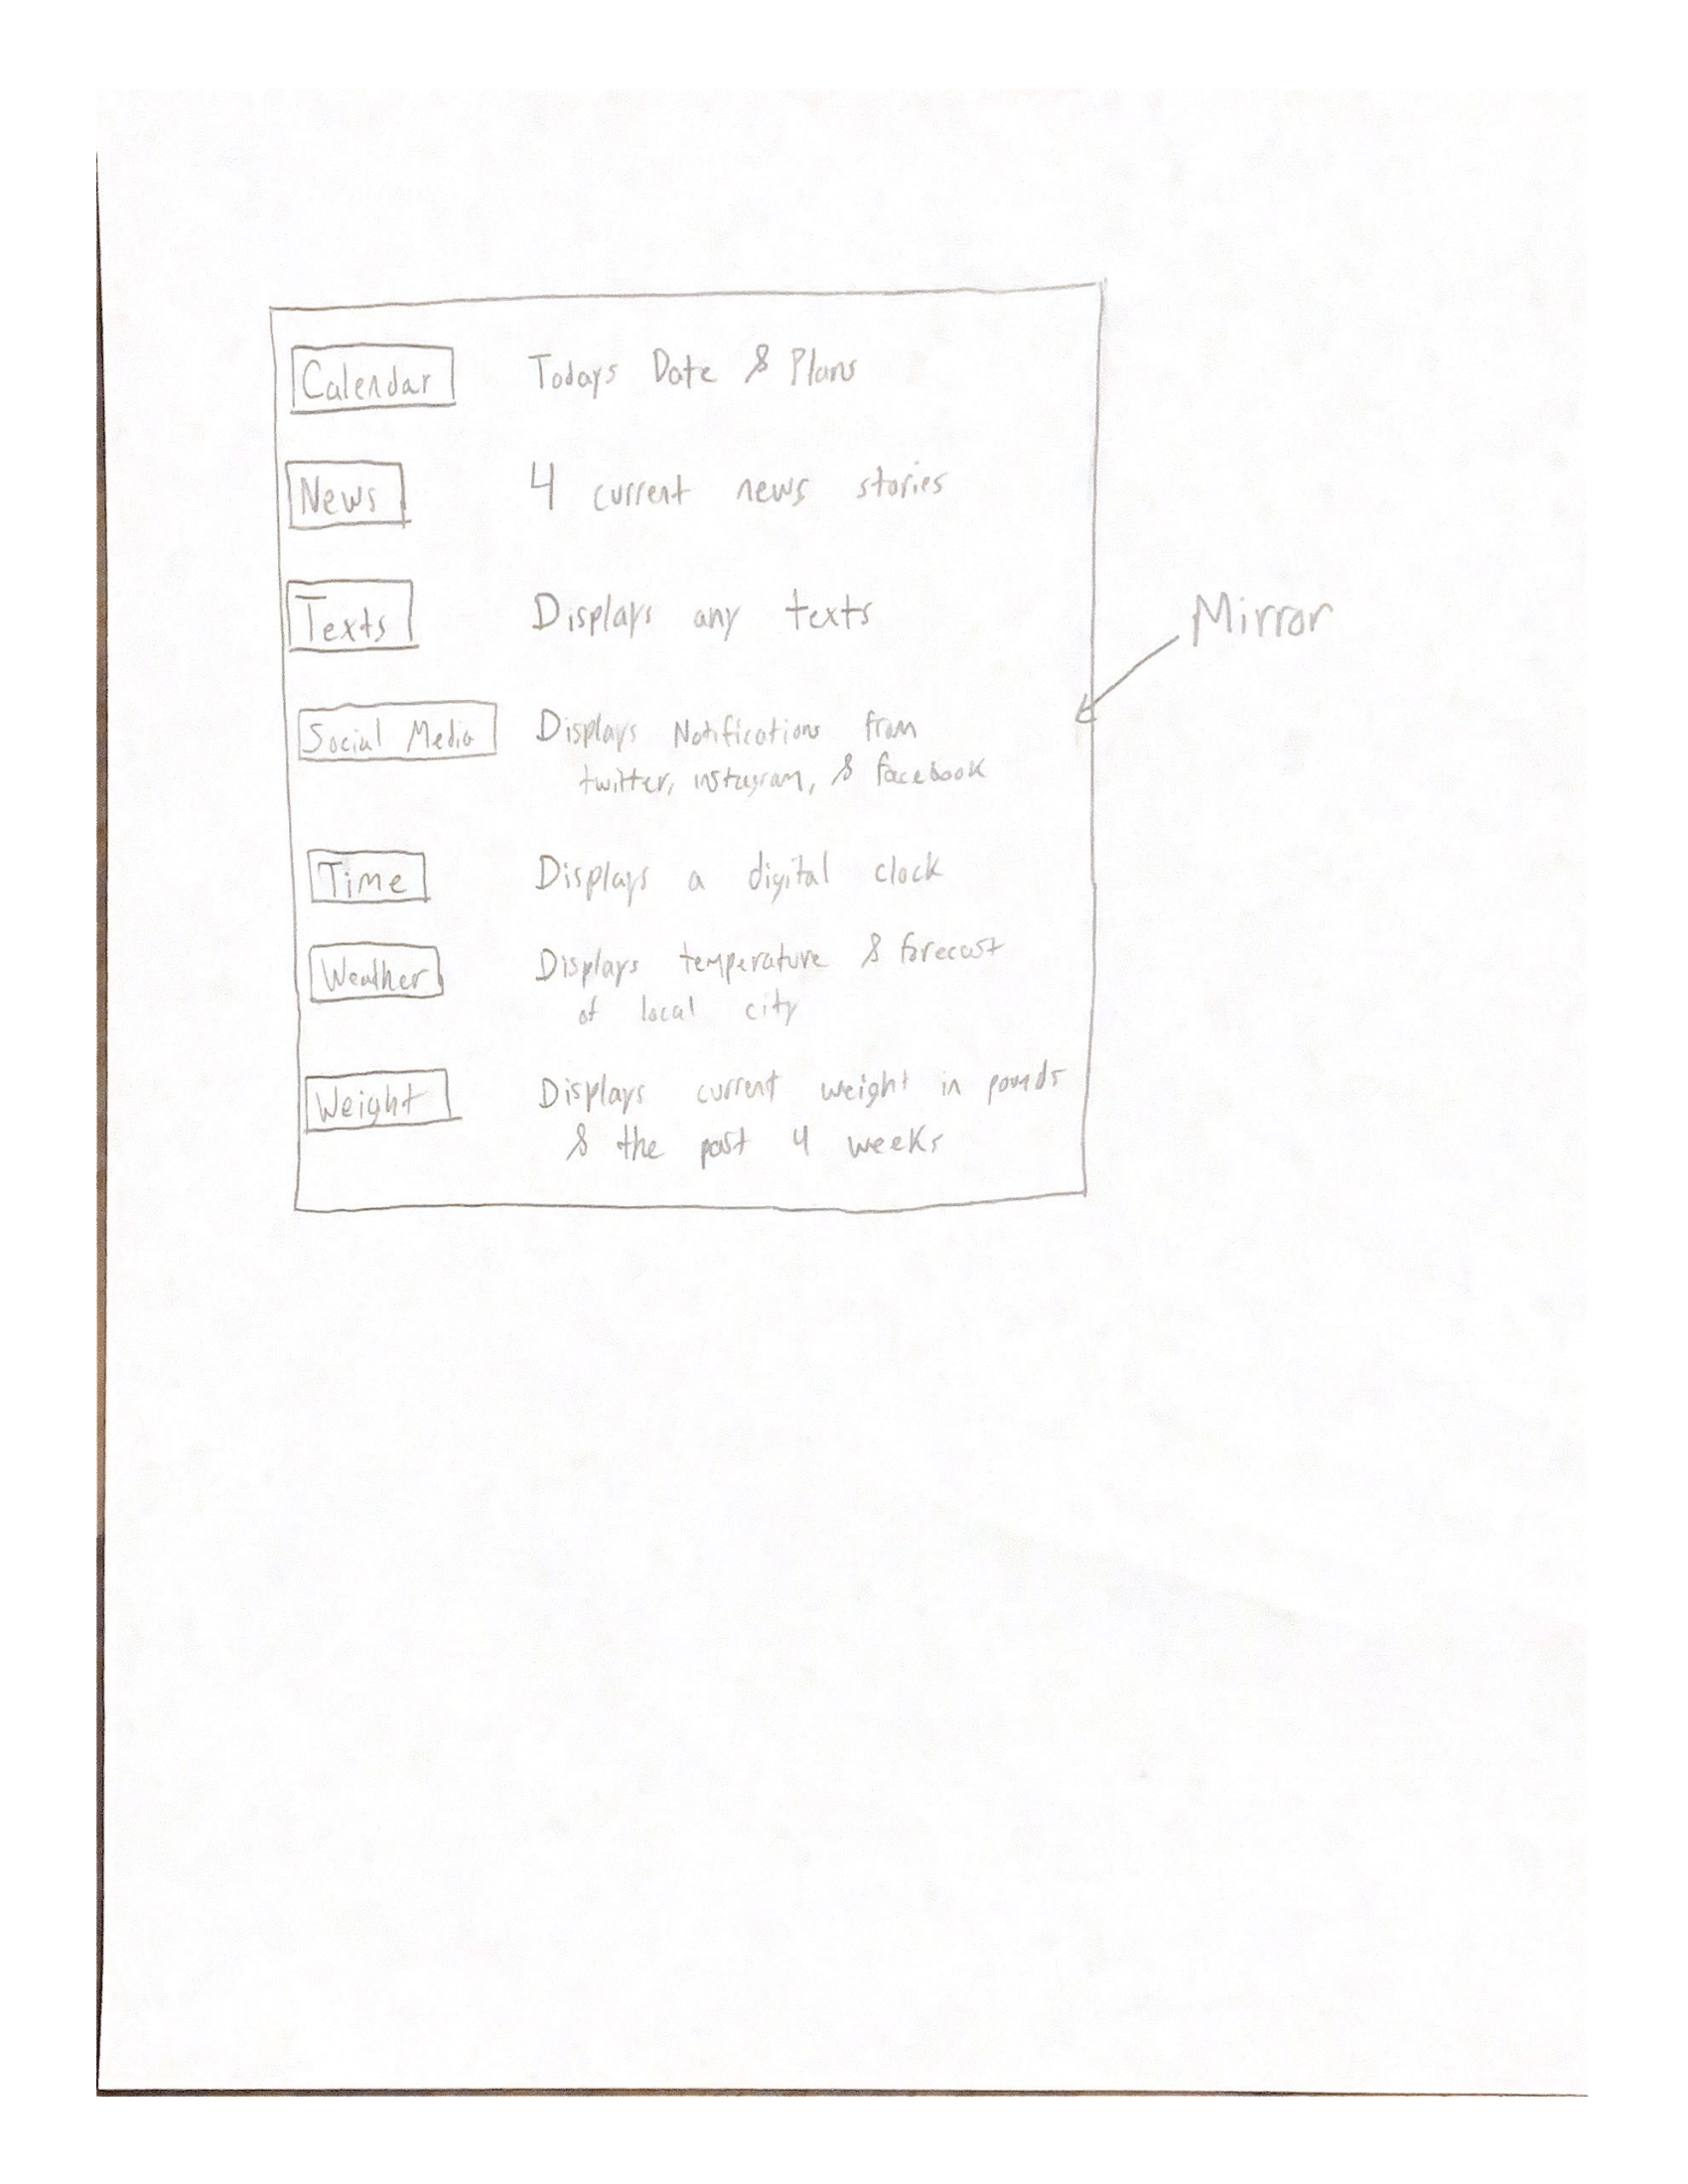 Calendar Todays Date & Plans
News 4 current news stories
Texts Displays any texts
Mirror
Social Media Displays Notifications from
twitter, instagram, & facebook
Time Displays a digital clock
Weather Displays temperature & forecast
of local city
Weight Displays current weight in pounds
& the past 4 weeks